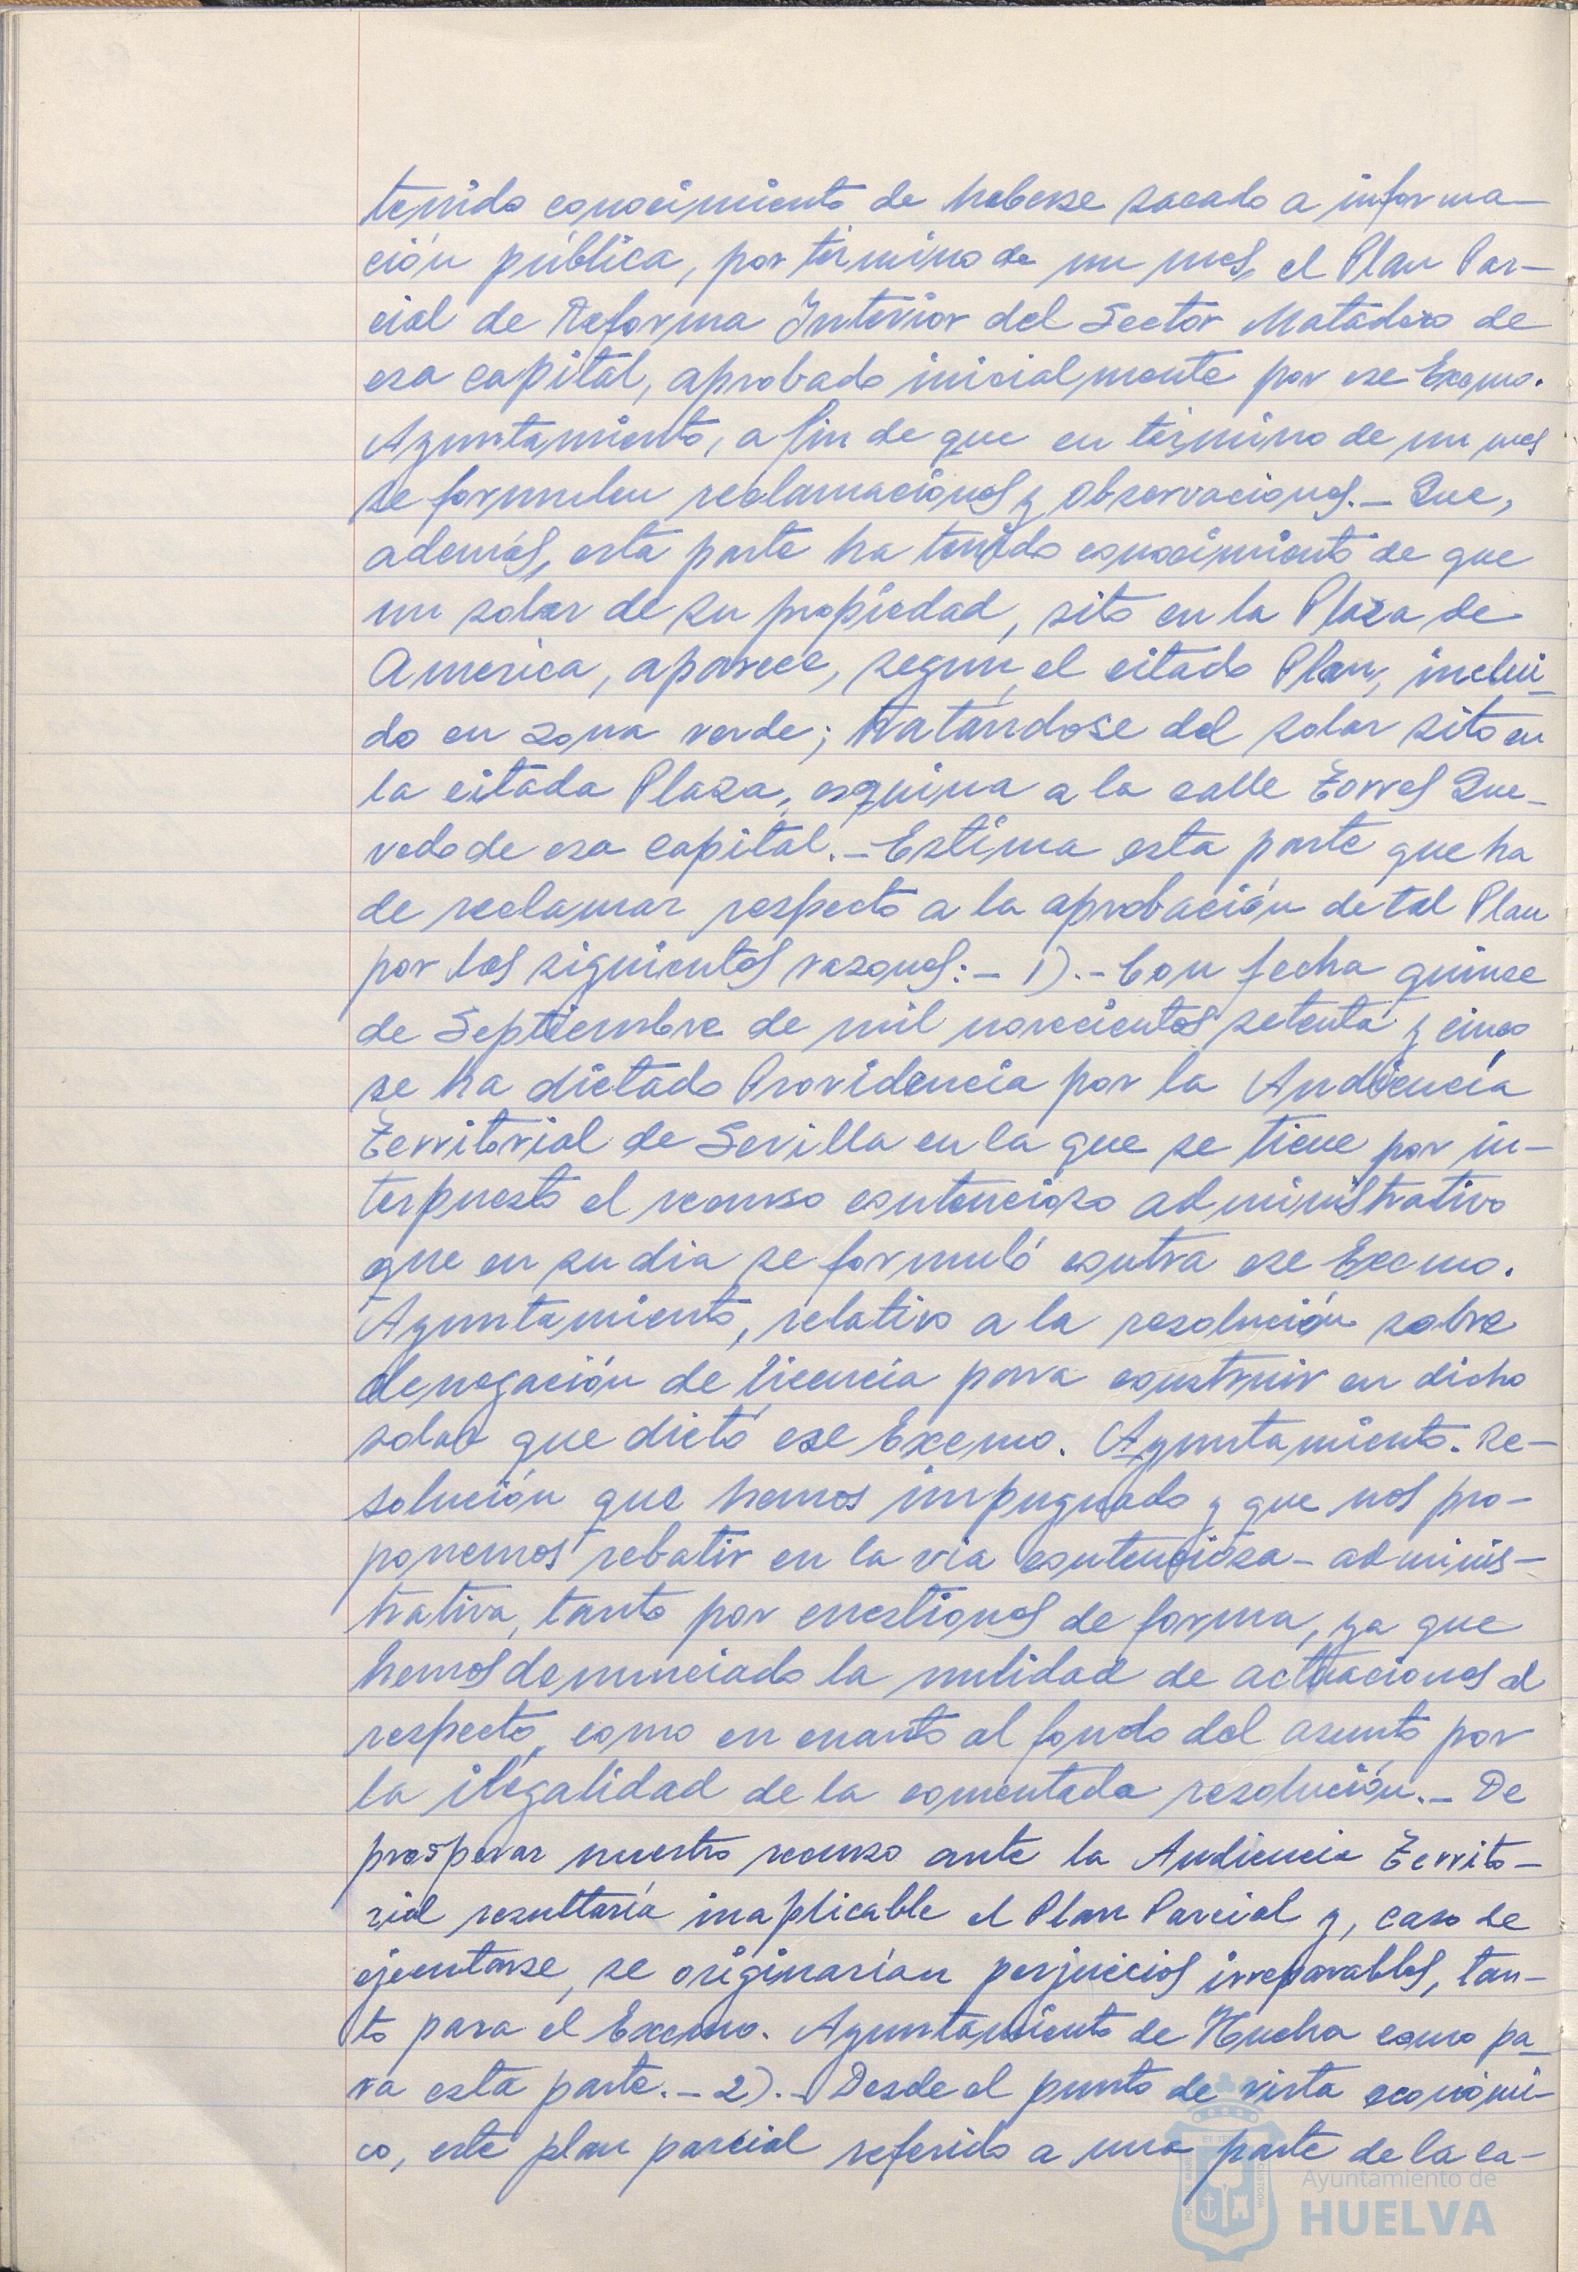 tenido conocimiento de haberse sacado a informa-
ción pública, por término de un mes, el Plan Par-
cial de Reforma Interior del Sector Matadero de
esa capital, aprobado inicialmente por ese Excmo.
Ayuntamiento, a fin de que en término de un mes
se formulen reclamaciones y observaciones.- Que,
además, esta parte ha tenido conocimiento de que
un solar de su propiedad, sito en la Plaza de
America, aparece, según el citado Plan, inclui-
do en zona verde; tratándose del solar sito en
la citada Plaza, esquina a la calle Torres Que-
vedo de esa capital.- Estima esta parte que ha
de reclamar respecto a la aprobación de tal Plan
por las siguientes razones:- 1).- Con fecha quince
de Septiembre de mil novecientos setenta y cinco
se ha dictado Providencia por la Audiencia
Territorial de Sevilla en la que se tiene por in-
terpuesto el recurso contencioso administrativo
que en su dia se formuló contra ese Excmo.
Ayuntamiento, relativo a la resolución sobre
denegación de licencia para construir en dicho
solar que dictó ese Excmo. Ayuntamiento. Re-
solución que hemos impugnado y que nos pro-
ponemos rebatir en la via contenciosa-adminis-
trativa, tanto por cuestiones de forma, ya que
hemos denunciado la nulidad de actuaciones al
respecto, como en cuanto al fondo del asunto por
la ilegalidad de la comentada resolución.- De
prosperar nuestro recurso ante la Audiencia Territo-
rial resultaría inaplicable el Plan Parcial y, caso de
ejecutarse, se originarían perjuicios irreparables, tan-
to para el Excmo. Ayuntamiento de Huelva como pa-
ra esta parte.- 2).- Desde el punto de vista económi-
co, este plan parcial referido a una parte de la ca-
Ayuntamiento de
HUELVA